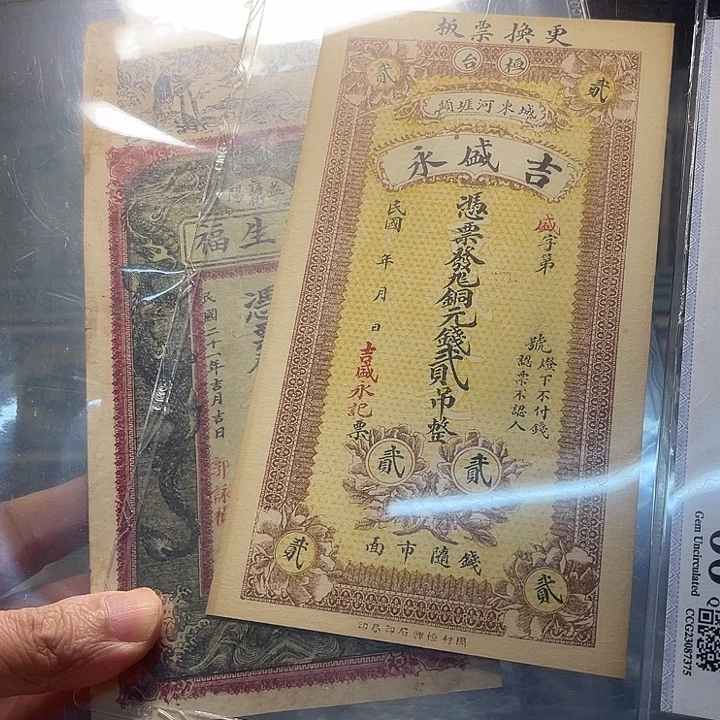 更換票板
桓台
貳
貳
城東河堐頭
吉盛永
盛字第
號燈下不付錢
認票不認人
憑票發兌銅元錢貳吊整
民國 年 月 日
吉盛永記票
貳
貳
錢隨市面
貳
貳
周村恒興石印局印
生福
憑票
民國二十一年吉月吉日
Gem Uncirculated
CCG23087375